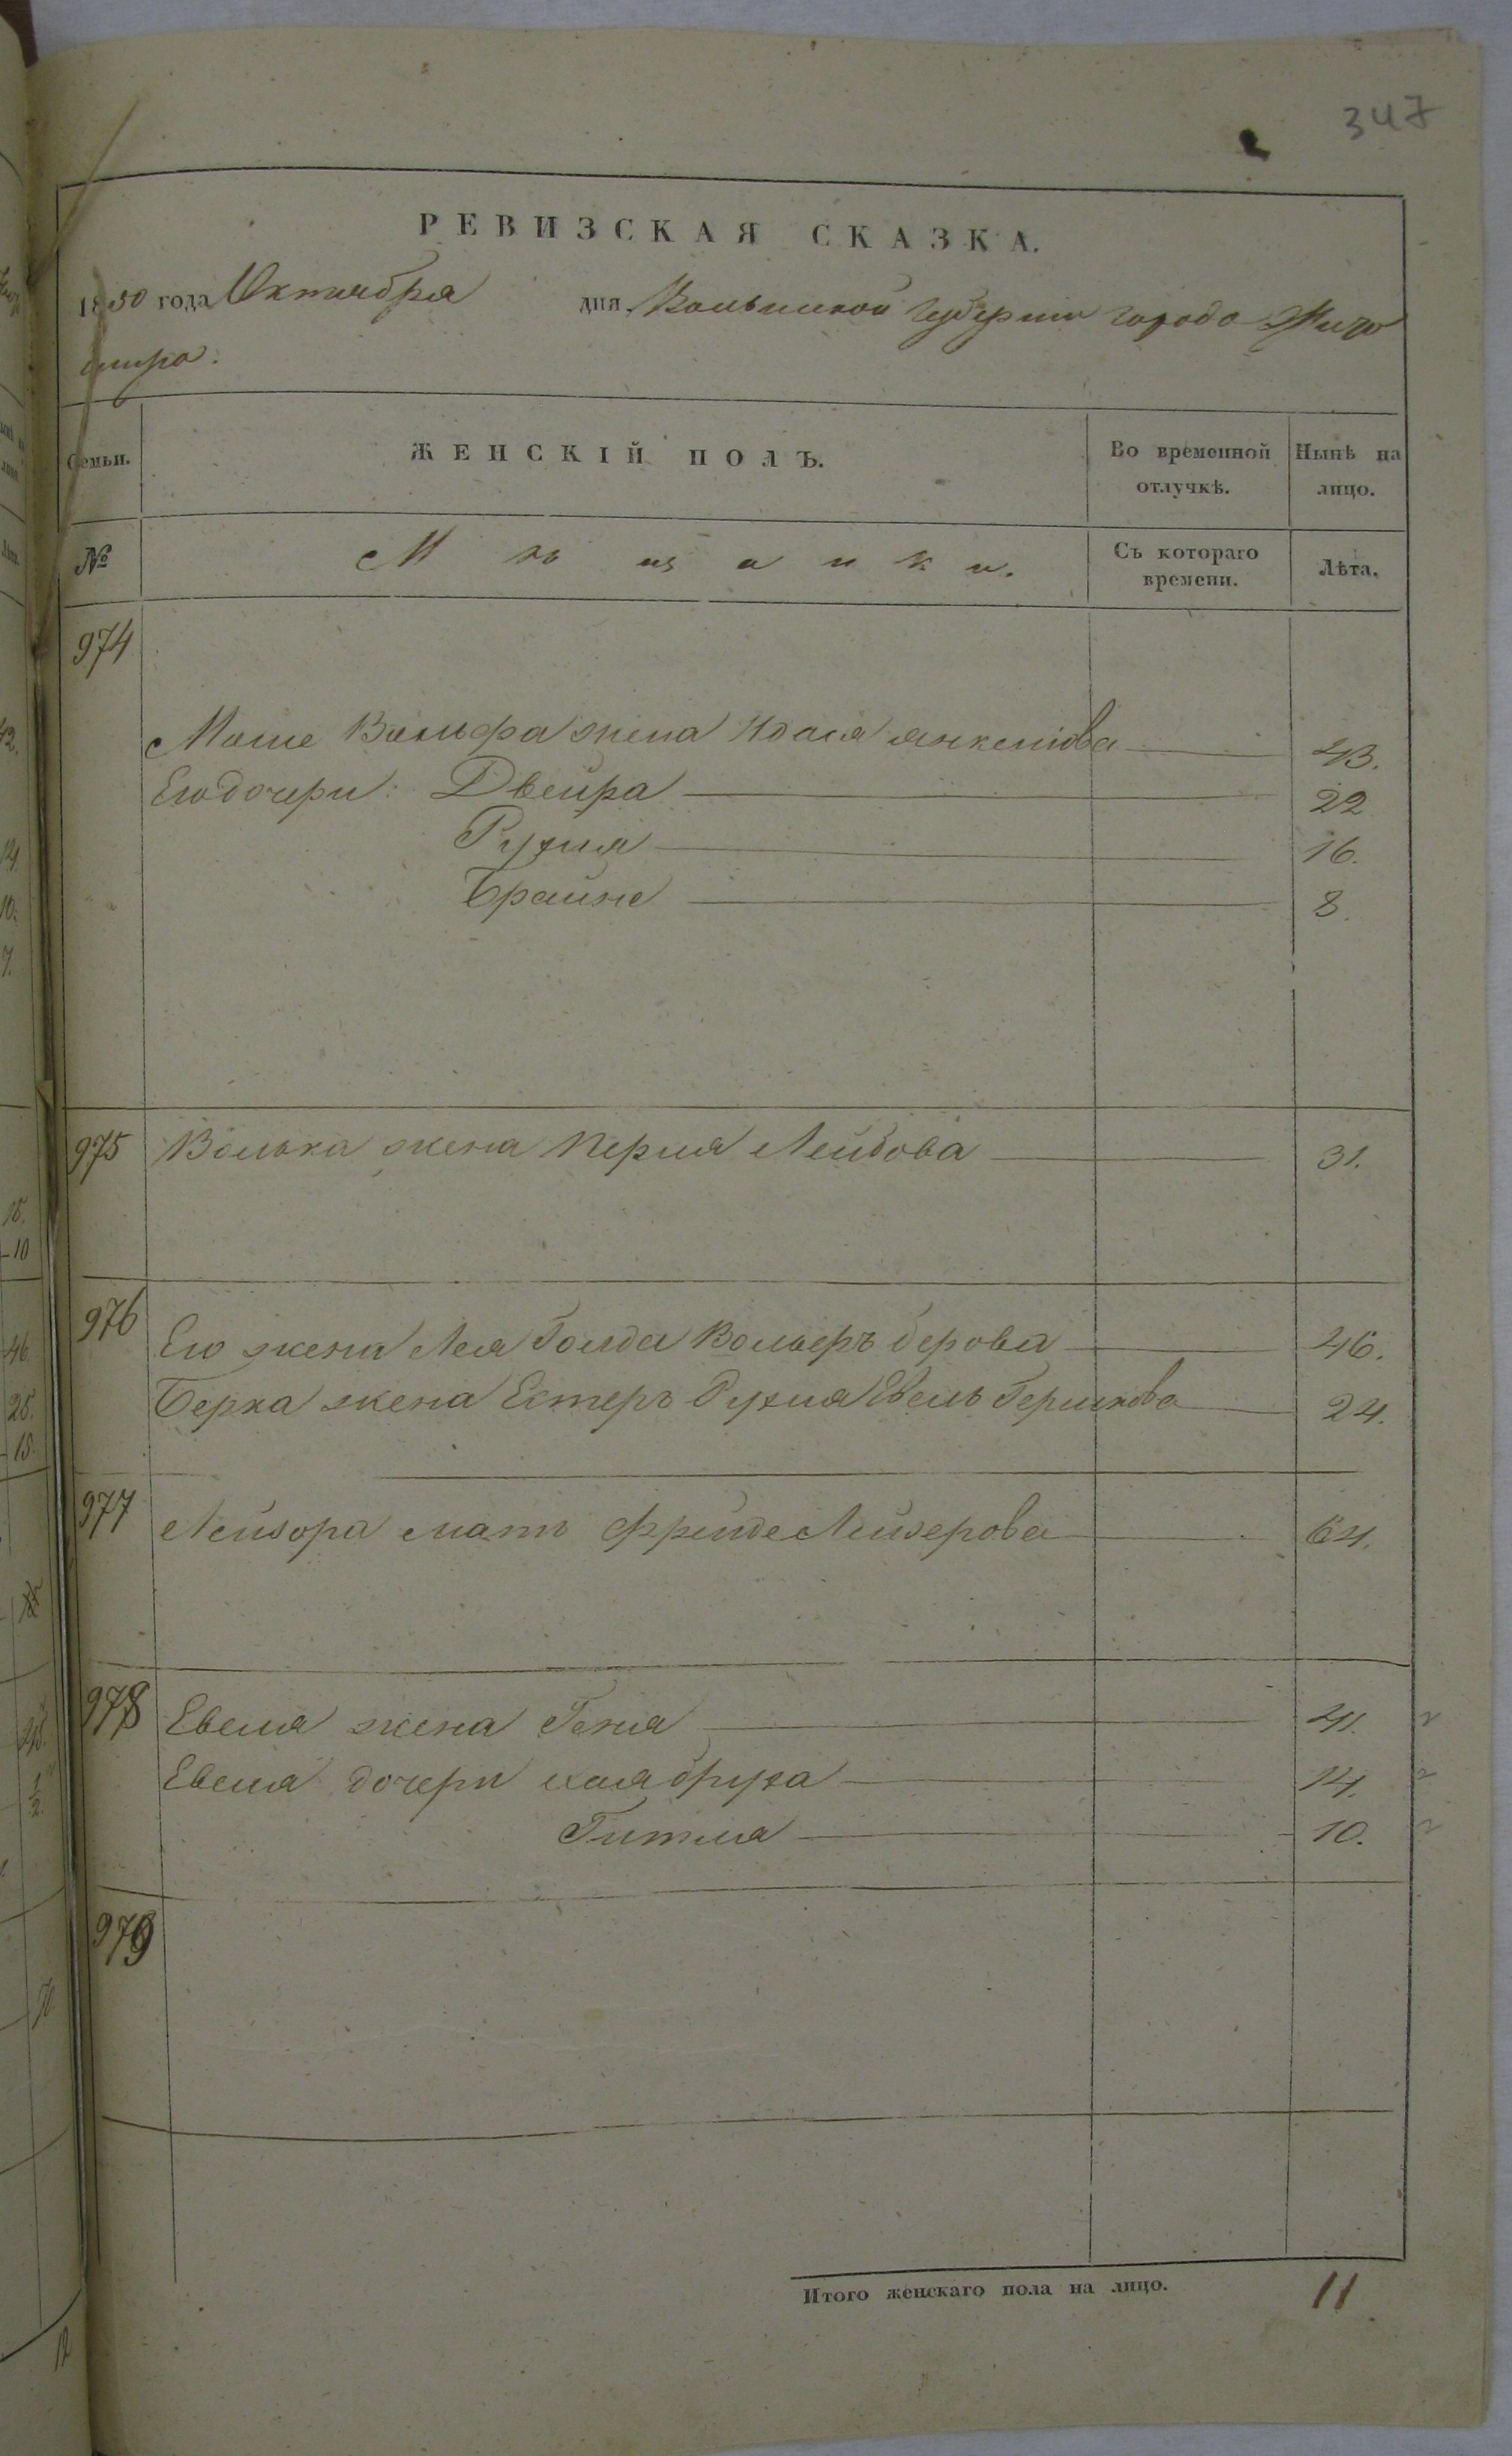 347
РЕВИЗСКАЯ СКАЗКА.
1850 года Октября дня Волынской Губернии города Жито
мира.
Семьи. ЖЕНСКІЙ ПОЛЪ. Во временной отлучкѣ. Нынѣ на лицо.
№ Мѣщанки. Съ котораго времени. Лѣта.
974
Моше Вольфа жена Идася Янкелiова 43.
Его дочери: Двейра 22
Рухля 16.
Брайне 8.
975 Волька жена Перля Лейбова 31.
976
Его жена Лея Голда Вольеръ Берова 46.
Берка жена Естеръ Рухля Евель Гершкова 24.
977 Лейзора мать Фрейде Лейзерова 64.
978 Евеля жена Геня 41.
Евеля дочери хая бруха 14.
Гитля 10.
979
Итого женскаго пола на лицо. 11